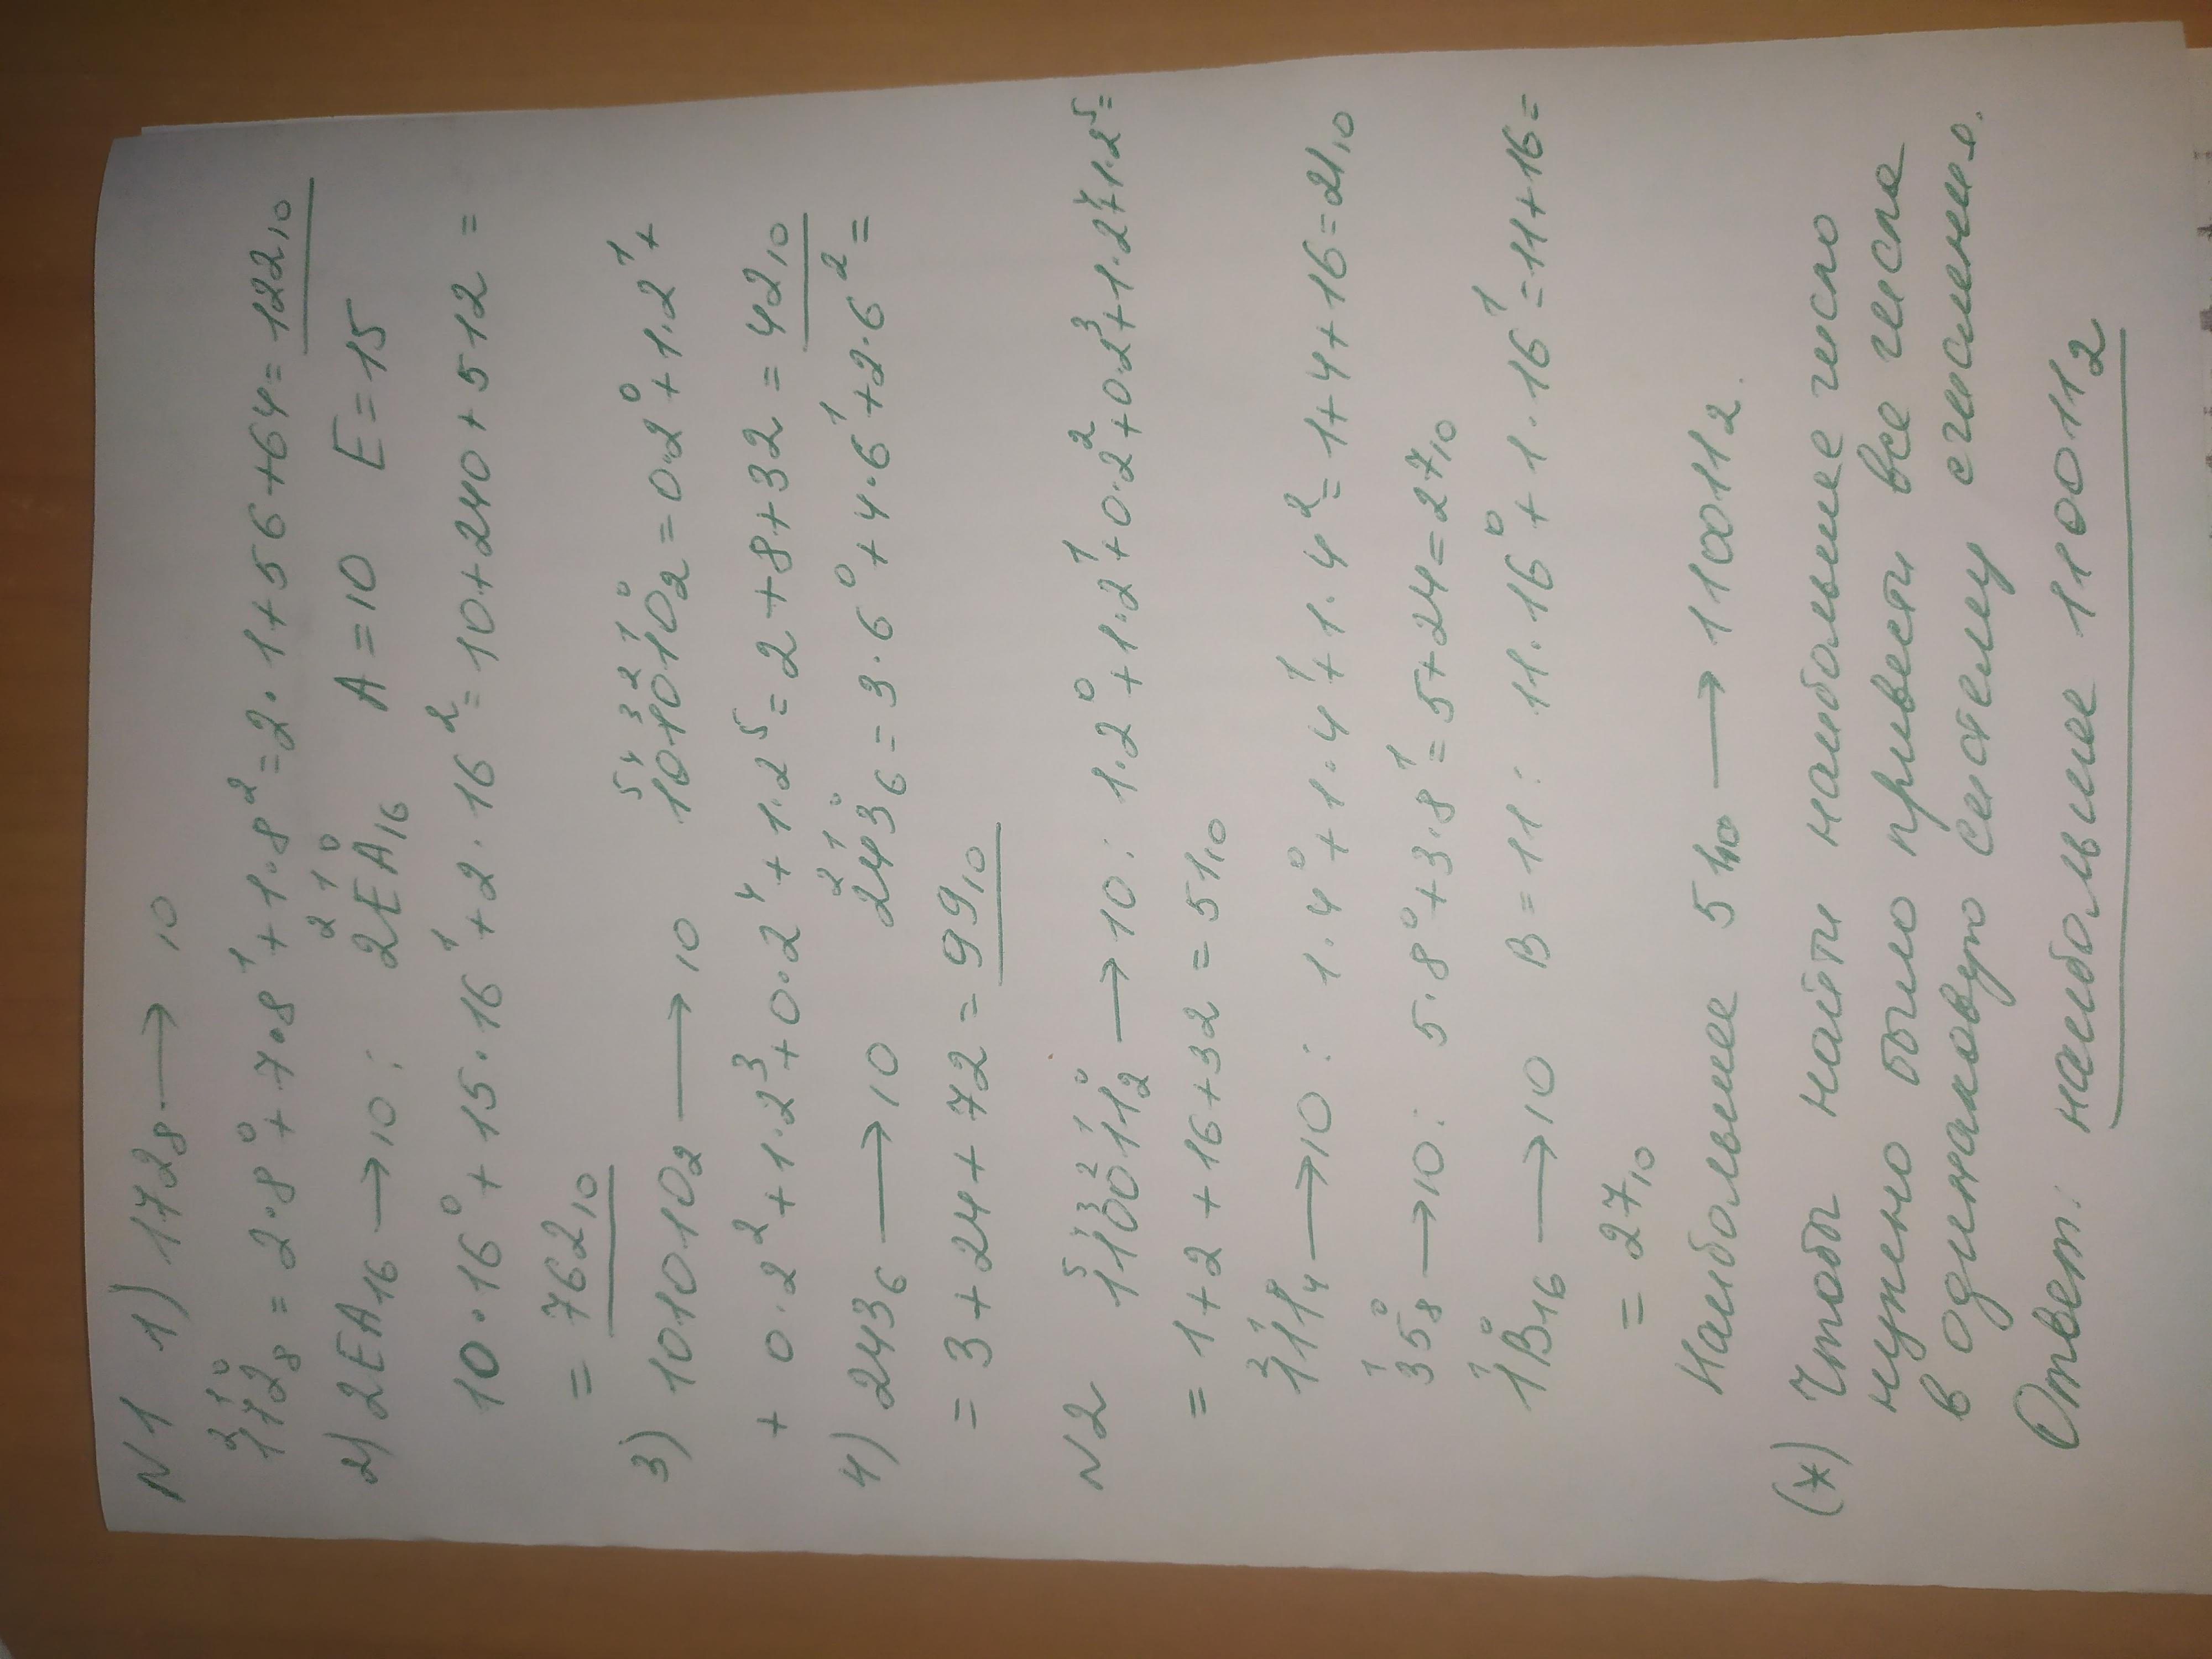 N1 1) 172₈ → 10
²1¹7⁰2₈ = 2·8⁰ + 7·8¹ + 1·8² = 2·1 + 56 + 64 = 122₁₀
2) 2EA₁₆ → 10: ²2¹E⁰A₁₆ A = 10 E = 15
10·16⁰ + 15·16¹ + 2·16² = 10 + 240 + 512 =
= 762₁₀
3) 101010₂ → 10 ⁵1⁴0³1²0¹1⁰0₂ = 0·2⁰ + 1·2¹ +
+ 0·2² + 1·2³ + 0·2⁴ + 1·2⁵ = 2 + 8 + 32 = 42₁₀
4) 243₆ → 10 ²2¹4⁰3₆ = 3·6⁰ + 4·6¹ + 2·6² =
= 3 + 24 + 72 = 99₁₀
N2 ⁵1⁴1³0²0¹1⁰1₂ → 10: 1·2⁰ + 1·2¹ + 0·2² + 0·2³ + 1·2⁴ + 1·2⁵ =
= 1 + 2 + 16 + 32 = 51₁₀
²1¹1⁰1₄ → 10: 1·4⁰ + 1·4¹ + 1·4² = 1 + 4 + 16 = 21₁₀
¹3⁰5₈ → 10: 5·8⁰ + 3·8¹ = 5 + 24 = 27₁₀
¹1⁰B₁₆ → 10 B = 11: 11·16⁰ + 1·16¹ = 11 + 16 =
= 27₁₀
Наибольшее 51₁₀ → 110011₂.
(*) Чтобы найти наибольшее число
нужно было привести все числа
в одинаковую систему счисления.
Ответ: наибольшее 110011₂